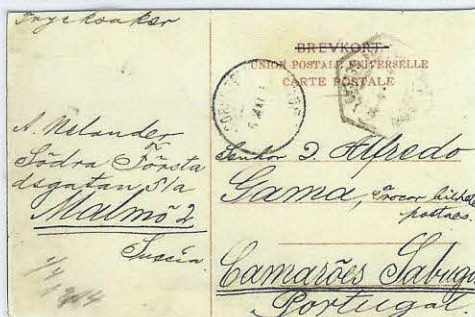 Trycksaker
BREVKORT
UNION POSTALE UNIVERSELLE
CARTE POSTALE
A. Nelander
Södra Första
dsgatan 51a
Malmö 2
Suecia
1/4
1914
Senhor D. Alfredo
Gama,
postaes.
Camarões Sabugo
Portugal